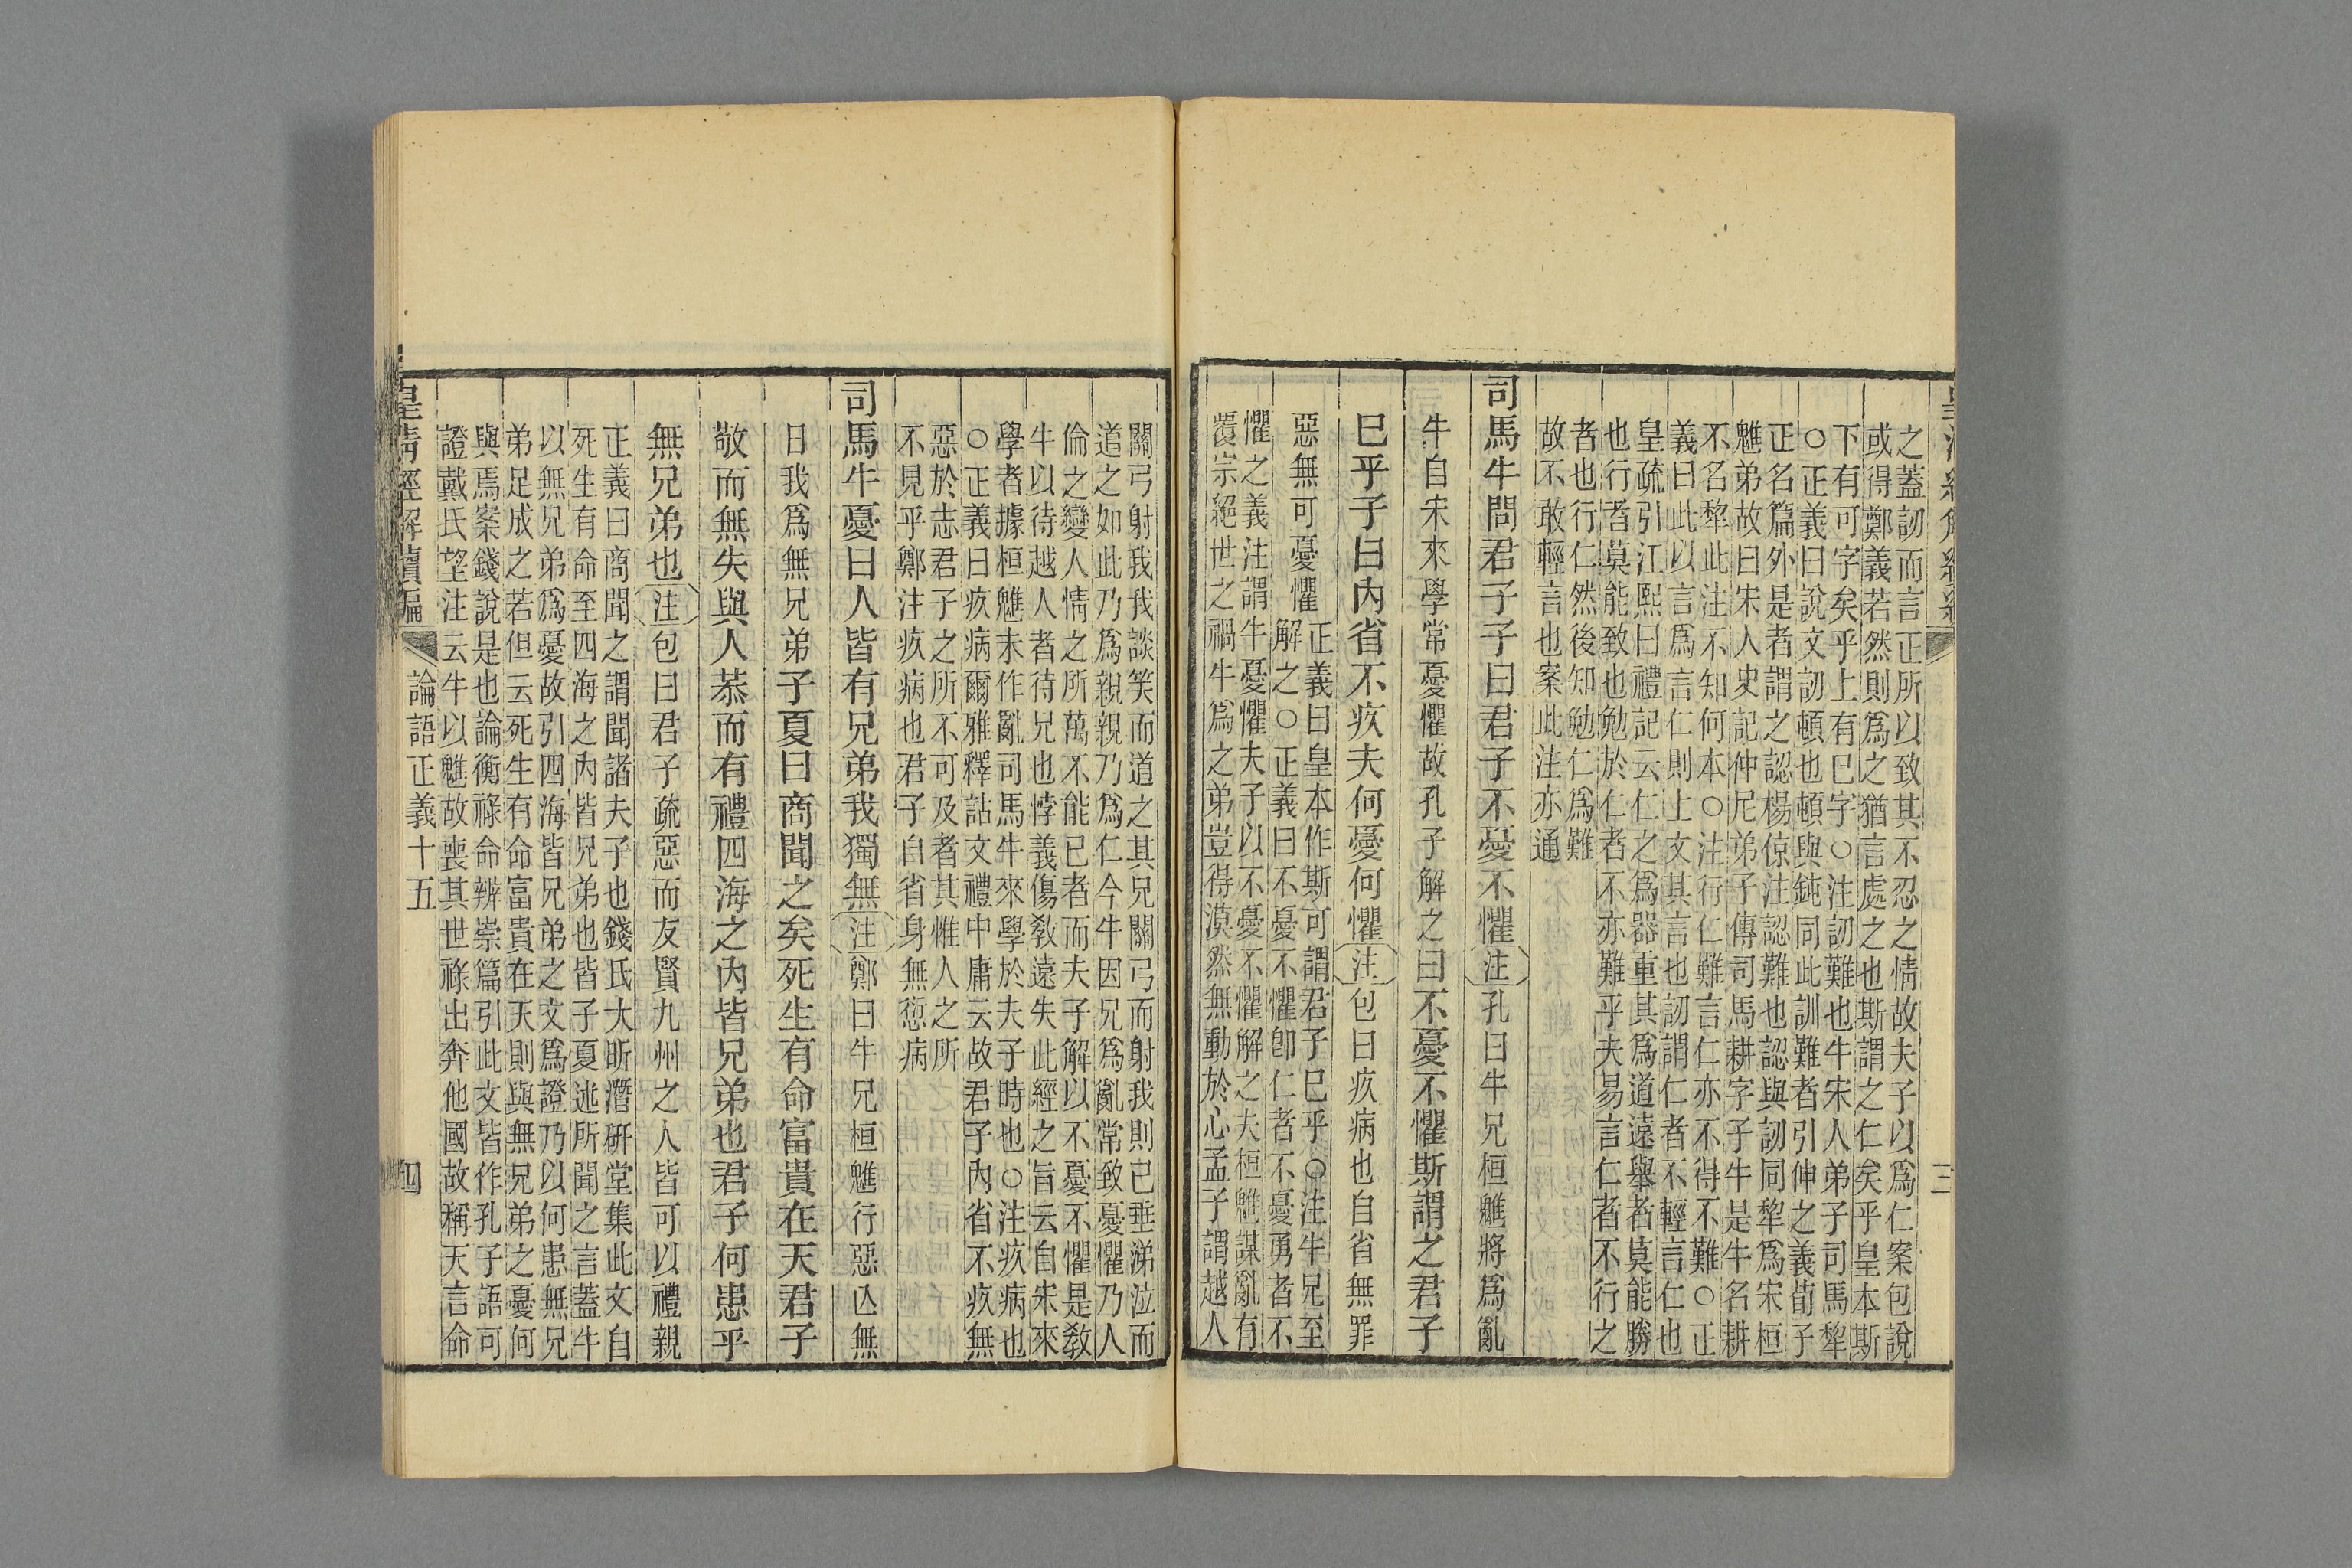 之蓋訒而言正所以致其不忍之情故夫子以爲仁案包說
或得鄭義若然則爲之猶言處之也斯謂之仁矣乎皇本斯
下有可字矣乎上有巳字○注訒難也牛宋人弟子司馬犂
○正義曰說文訒頓也頓與鈍同此訓難者引伸之義荀子
正名篇外是者謂之認楊倞注認難也認與訒同犂爲宋桓
魋弟故曰宋人史記仲尼弟子傳司馬耕字子牛是牛名耕
不名犂此注不知何本○注行仁難言仁亦不得不難○正
義曰此以言爲言仁則上文其言也訒謂仁者不輕言仁也
皇疏引江熙曰禮記云仁之爲器重其爲道遠舉者莫能勝
也行者莫能致也勉於仁者不亦難乎夫易言仁者不行之
者也行仁然後知勉仁爲難
故不敢輕言也案此注亦通
司馬牛問君子子曰君子不憂不懼注孔曰牛兄桓魋將爲亂
牛自宋來學常憂懼故孔子解之曰不憂不懼斯謂之君子
巳乎子曰內省不疚夫何憂何懼注包曰疚病也自省無罪
惡無可憂懼
正義曰皇本作斯可謂君子巳乎○注牛兄至
解之○正義曰不憂不懼卽仁者不憂勇者不
懼之義注謂牛憂懼夫子以不憂不懼解之夫桓魋謀亂有
覆宗絕世之禍牛爲之弟豈得漠然無動於心孟子謂越人
關弓射我我談笑而道之其兄關弓而射我則已垂涕泣而
道之如此乃爲親親乃爲仁今牛因兄爲亂常致憂懼乃人
倫之變人情之所萬不能已者而夫子解以不憂不懼是敎
牛以待越人者待兄也悖義傷敎遠失此經之旨云自宋來
學者據桓魋未作亂司馬牛來學於夫子時也○注疚病也
○正義曰疚病爾雅釋詁文禮中庸云故君子內省不疚無
惡於志君子之所不可及者其惟人之所
不見乎鄭注疚病也君子自省身無愆病
司馬牛憂曰人皆有兄弟我獨無注鄭曰牛兄桓魋行惡亾無
日我爲無兄弟子夏曰商聞之矣死生有命富貴在天君子
敬而無失與人恭而有禮四海之內皆兄弟也君子何患乎
無兄弟也注包曰君子疏惡而友賢九州之人皆可以禮親
正義曰商聞之謂聞諸夫子也錢氏大昕潛研堂集此文自
死生有命至四海之內皆兄弟也皆子夏述所聞之言蓋牛
以無兄弟爲憂故引四海皆兄弟之文爲證乃以何患無兄
弟足成之若但云死生有命富貴在天則與無兄弟之憂何
與焉案錢說是也論衡祿命辨崇篇引此文皆作孔子語可
證戴氏望注云牛以魋故喪其世祿出奔他國故稱天言命
皇淸經解續編
論語正義十五
四